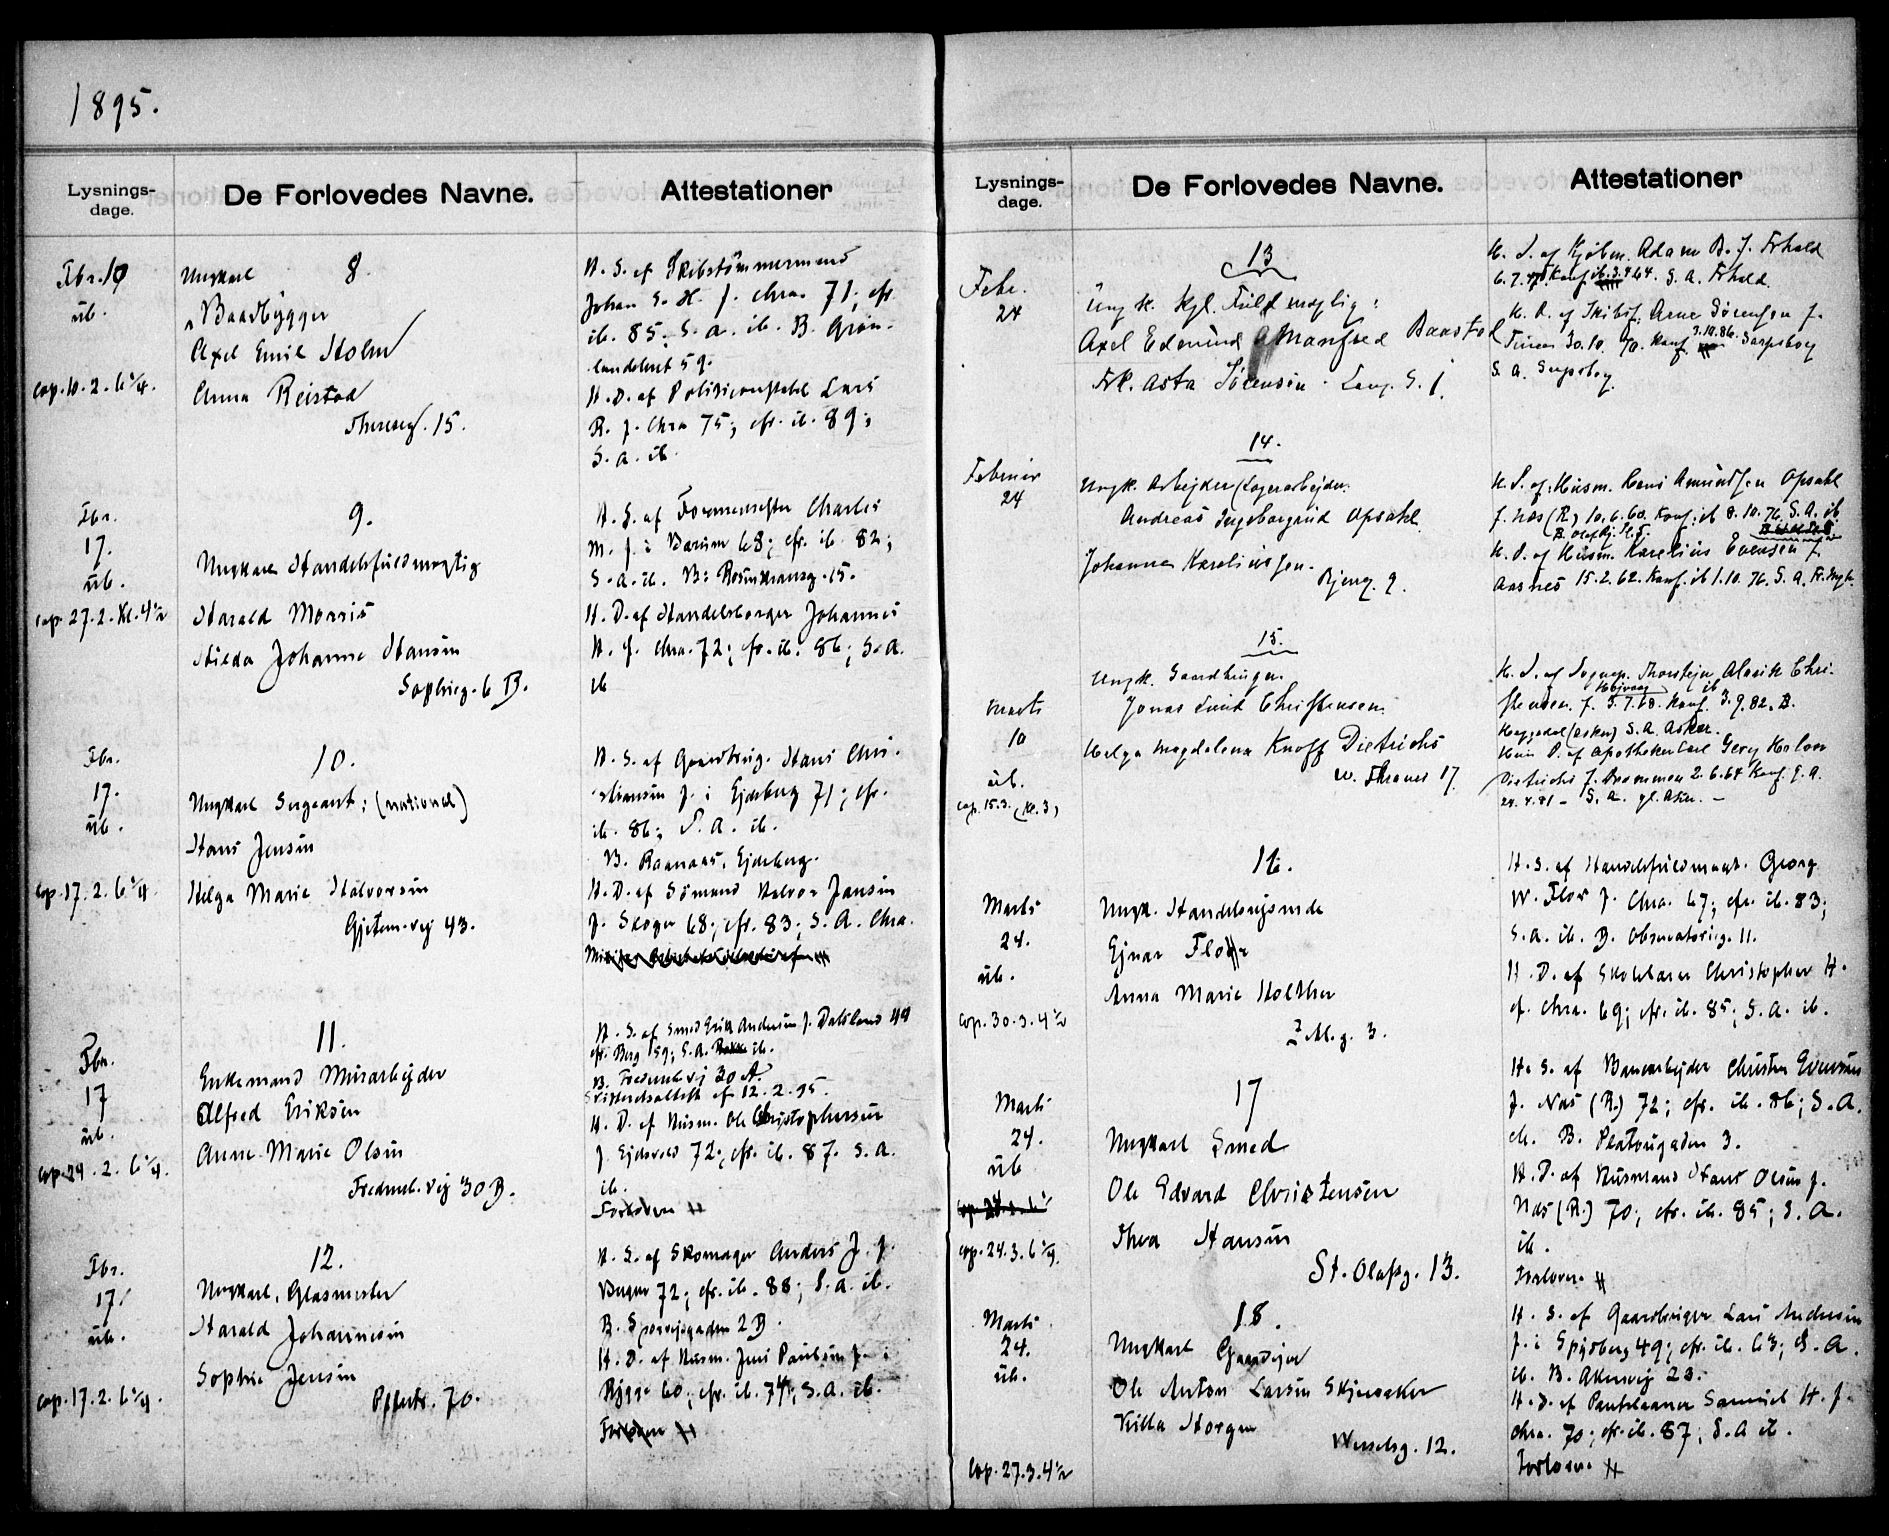 1895.
Lysnings-
dage.
De Forlovedes Navne.
Attestationer
Fbr. 10
üb.
cop. 10. 2. 6 1/4.
8.
Ungkarl
Baadbygger
Axel Emil Holm
Anna Reistad
Theresesg. 15.
H. S. af Skibstömmermand
Johan S. H. f. Chra. 71; cfr.
ib. 85; S. a. ib. B. Grön-
landsleret 59.
H. D. af Politiconstabel Lars
R. f. Chra 75; cfr. ib. 89;
S. a. ib.
Fbr.
17.
üb.
cop. 27. 2. Kl. 4 1/2
9.
Ungkarl Handelsfuldmægtig
Harald Morris
Hilda Johanne Hansen
Sophiesg. 6 B.
H. S. af Formermester Charles
M. f. i Bærum 68; cfr. ib. 82;
S. a. ib. B: Rosenkransg. 15.
H. D. af Handelsborger Johannes
H. f. Chra. 72; cfr. ib. 86; S. a.
ib
Fbr.
17.
üb.
cop. 17. 2. 6 1/4.
10.
Ungkarl Sergeant; (national)
Hans Jensen
Helga Marie Halvorsen
Gjetem. vej 43.
H. S. af Gaardbrug. Hans Chri-
stiansen f. i Ejdsberg 71; cfr.
ib. 86; S. A. ib.
B. Raanaas, Ejdsberg.
H. D. af Sömand Halvor Jansen
f. Skoger 68; cfr. 83; S. A. Chra.
Fbr.
17
üb.
cop. 24. 2. 6 1/4.
11.
Enkemand Murarbejder
Alfred Eriksen
Anne Marie Olsen
Fredensb. vej 30 B.
H. S. af Smed Erik Andersen f. Dalsland 44
cfr. Berg 59; S. A. ib.
B. Fredensb. vej 30 A.
Skifteretsattest af 12. 2. 95.
H. D. af Husm. Ole Christophersen
f. Ejdsvold 72; cfr. ib. 87. S. a.
ib.
Forlovere
Fbr.
17.
üb.
cop. 17. 2. 6 1/4.
12.
Ungkarl, Glasmester
Harald Johannesen
Sophie Jensen
Pilestr. 70.
H. S. af Skomager Anders J. f.
72; cfr. ib. 88; S. A. ib.
B. Sporvejsgaden 2 B.
H. D. af Husm. Jens Paulsen f.
Rygge 60; cfr. ib. 74; S. a. ib.
Forlovere
Lysnings-
dage.
De Forlovedes Navne.
Attestationer
Febr.
24
13
Ungk. kgl. Fuldmægtig:
Axel Edmund Manfred Baastad
Frk. Asta Sørensen.
H. S. af Kjøbm. Adam B. f. Frhald
Konf. ib. 64. S. A. Frhald.
H. D. af Skibsf. Arne Sørensen f.
30. 10. 70. Konf. 3.10.86. Sarpsborg
S. A. Sarpsborg
Februar
24
14.
Ungk. Arbejder (Lagerarbejder.
Andreas Ingeborgrud Opsahl
Johanne Kareliussen.
Bjerg. 9.
H. S. af Husm. Hans Amundsen Opsahl
f. Næs (R) 10. 6. 60. Konf. ib 8. 10. 76. S. A. ib
H. D. af Husm. Karelius Evensen f.
Aasnes 15. 2. 62. Konf. ib 1. 10. 76. S. A.
Marts
10
üb.
cop. 15. 3. (kl. 3)
15.
Ungk. Gaardbruger
Jonas Smit Christensen
Helga Magdalena Knoff Dietrichs
W. Thranes 17.
H. S. af Sognep. Thorstein Alarik Chri-
stensen. f. 5. 7. 68. Konf. ib 3. 9. 82. B.
(Asker) S. A. Asker.
D. af Apotheker Carl Georg Holm
Dietrichs f. Drammen 2. 6. 64 Konf.
24. 4. 81 – S. a. gl. Aker. –
Marts
24.
üb.
cop. 30. 3. 4 1/2
16.
Ungk. Handelsrejsende
Ejnar Flor
Anna Marie Holther
M. g. 3.
H. S. af Handelsfuldmægt. Georg
W. Flor f. Chra. 67; cfr. ib. 83;
S. a. ib. B. Observatorieg. 11.
H. D. af Skolelærer Christopher H.
f. Chra. 69; cfr. ib. 85; S. A. ib.
Marts
24.
üb
cop. 24. 3. 6 1/4.
17
Ungkarl Smed
Ole Edvard Christensen
Thea Hansen
St. Olafsg. 13.
H. S. af Banearbejder Christen Evensen
f. Næs (R.) 72; cfr. ib. 86; S. A.
ib. B. Platougaden 3.
H. D. af Husmand Hans Olsen f.
Næs (R.) 70; cfr. ib. 85; S. A.
ib.
Forlovere
Marts
24.
üb.
cop. 27. 3. 4 1/2
18.
Ungkarl Gaardejer
Ole Anton Larsen Skjeraker
Villa Horgen
Wesselsg. 12.
H. S. af Gaardbruger Lars Andersen
f. i Spydberg 49; cfr. ib. 63; S. A.
ib. B. Akersvej 23.
H. D. af Pantelaaner Samuel H. f.
Chra. 70; cfr. ib. 87; S. A ib.
Forlovere